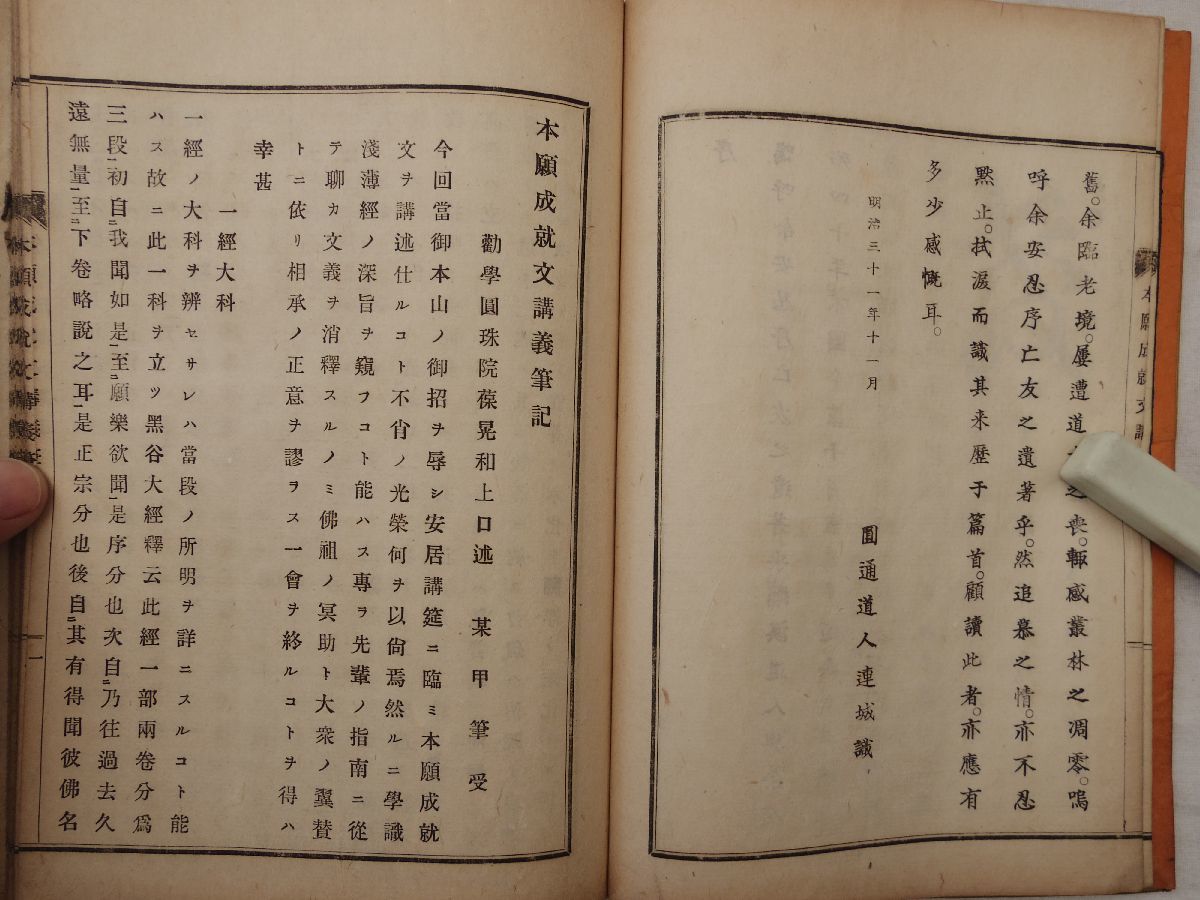 舊。余臨老境。屢遭道之喪。輙感叢林之凋零。嗚
呼余安忍序亡友之遺著乎。然追慕之情。亦不忍
默止。拭淚而識其来歷于篇首。顧讀此者。亦應有
多少感慨耳。
明治三十一年十一月
圓通道人連城識
本願成就文講
本願成就文講義筆記
勸學圓珠院葆晃和上口述 某甲筆受
今回當御本山ノ御招ヲ辱シ安居講筵ニ臨ミ本願成就
文ヲ講述仕ルコト不肖ノ光榮何ヲ以尙焉然ルニ學識
淺薄經ノ深旨ヲ窺フコト能ハス專ラ先輩ノ指南ニ從
テ聊カ文義ヲ消釋スルノミ佛祖ノ冥助ト大衆ノ翼賛
トニ依リ相承ノ正意ヲ謬ラス一會ヲ終ルコトヲ得ハ
幸甚
一經大科
一經ノ大科ヲ辨セサレハ當段ノ所明ヲ詳ニスルコト能
ハス故ニ此一科ヲ立ツ黑谷大經釋云此經一部兩卷分爲
三段初自我聞如是至願樂欲聞是序分也次自乃往過去久
遠無量至下卷略說之耳是正宗分也後自其有得聞彼佛名
本願成就文講義筆記
一